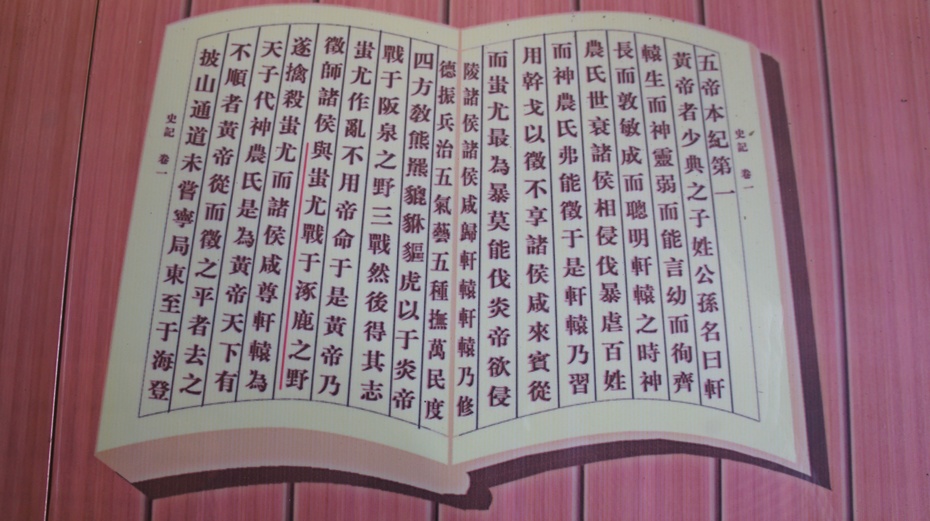 史記 卷一
五帝本紀第一
黃帝者少典之子姓公孫名曰軒
轅生而神靈弱而能言幼而徇齊
長而敦敏成而聰明軒轅之時神
農氏世衰諸侯相侵伐暴虐百姓
而神農氏弗能徵于是軒轅乃習
用幹戈以徵不享諸侯咸來賓從
而蚩尤最為暴莫能伐炎帝欲侵
陵諸侯諸侯咸歸軒轅軒轅乃修
德振兵治五氣藝五種撫萬民度
四方教熊羆貔貅貙虎以于炎帝
戰于阪泉之野三戰然後得其志
蚩尤作亂不用帝命于是黃帝乃
徵師諸侯與蚩尤戰于涿鹿之野
遂擒殺蚩尤而諸侯咸尊軒轅為
天子代神農氏是為黃帝天下有
不順者黃帝從而徵之平者去之
披山通道未嘗寧局東至于海登
史記 卷一